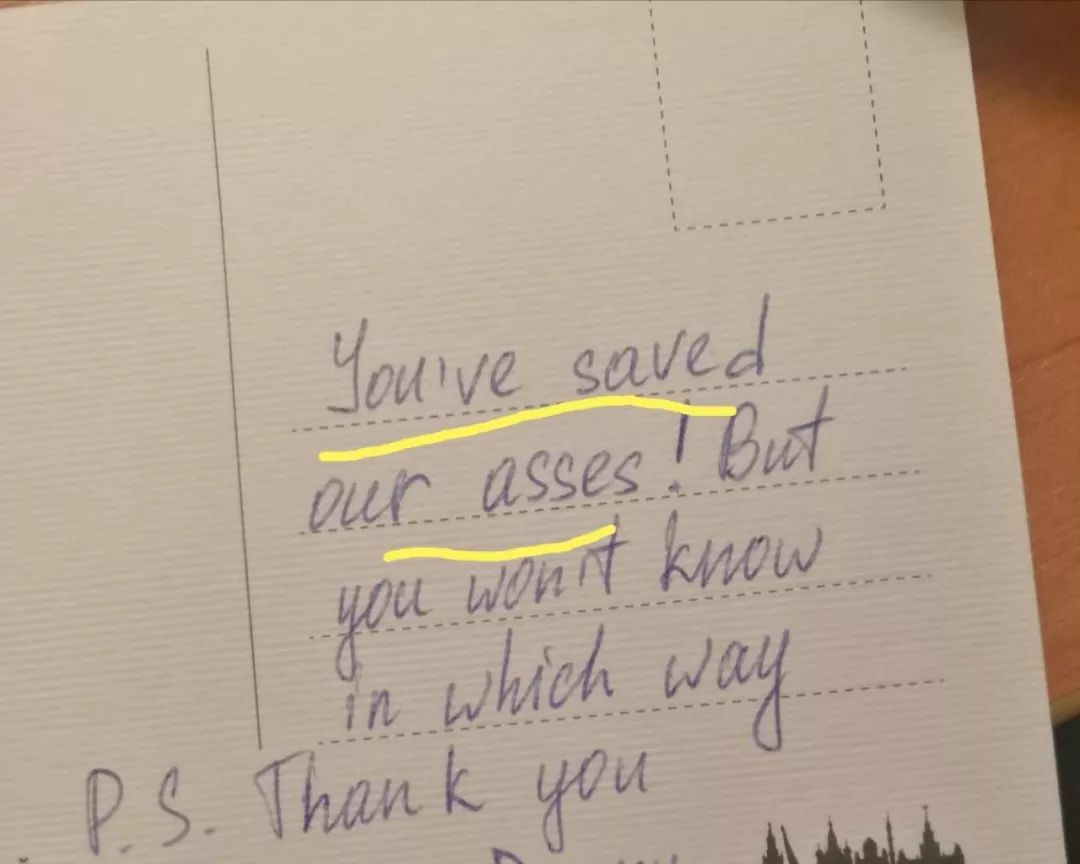 You've saved
our asses! But
you won't know
in which way
P.S. Thank you